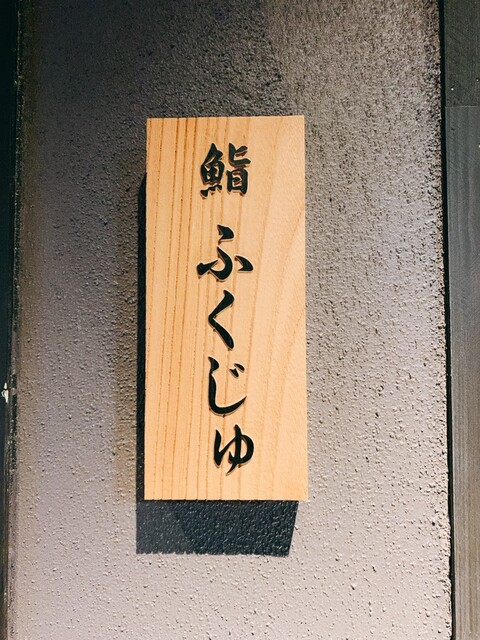 鮨 ふくじゅ